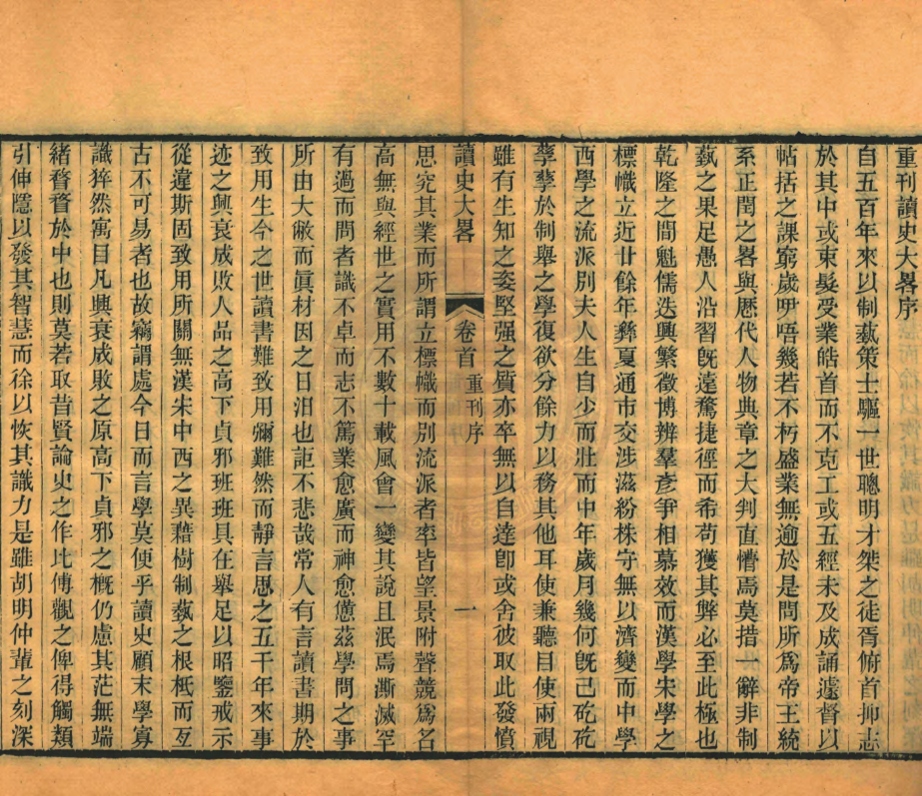 重刊讀史大畧序
自五百年來以制蓺策士驅一世聰明才桀之徒胥俯首抑志
於其中或束髮受業皓首而不克工或五經未及成誦遽督以
帖括之課窮歲咿唔幾若不朽盛業無逾於是問所爲帝王統
系正閏之畧與厯代人物典章之大判直懵焉莫措一辭非制
蓺之果足愚人沿習旣遠騖捷徑而希苟獲其弊必至此極也
乾隆之間魁儒迭興繁徵博辨羣彥爭相慕效而漢學宋學之
標幟立近廿餘年彝夏通市交涉滋紛株守無以濟變而中學
西學之流派別夫人生自少而壯而中年歲月幾何旣已矻矻
孳孳於制舉之學復欲分餘力以務其他耳使兼聽目使兩視
雖有生知之姿堅强之質亦卒無以自達卽或舍彼取此發憤
讀史大畧 卷首 重刊序 一
思究其業而所謂立標幟而別流派者率皆望景附聲競爲名
高無與經世之實用不數十載風會一變其說且泯焉澌滅罕
有過而問者識不卓而志不篤業愈廣而神愈憊茲學問之事
所由大敝而眞材因之日汨也詎不悲哉常人有言讀書期於
致用生今之世讀書難致用彌難然而靜言思之五千年來事
迹之興衰成敗人品之高下貞邪班班具在舉足以昭鑒戒示
從違斯固致用所關無漢宋中西之異藉樹制蓺之根柢而亙
古不可易者也故竊謂處今日而言學莫便乎讀史顧末學寡
識猝然寓目凡興衰成敗之原高下貞邪之槪仍慮其茫無端
緒瞀瞀於中也則莫若取昔賢論史之作比傅觀之俾得觸類
引伸隱以發其智慧而徐以恢其識力是雖胡明仲輩之刻深